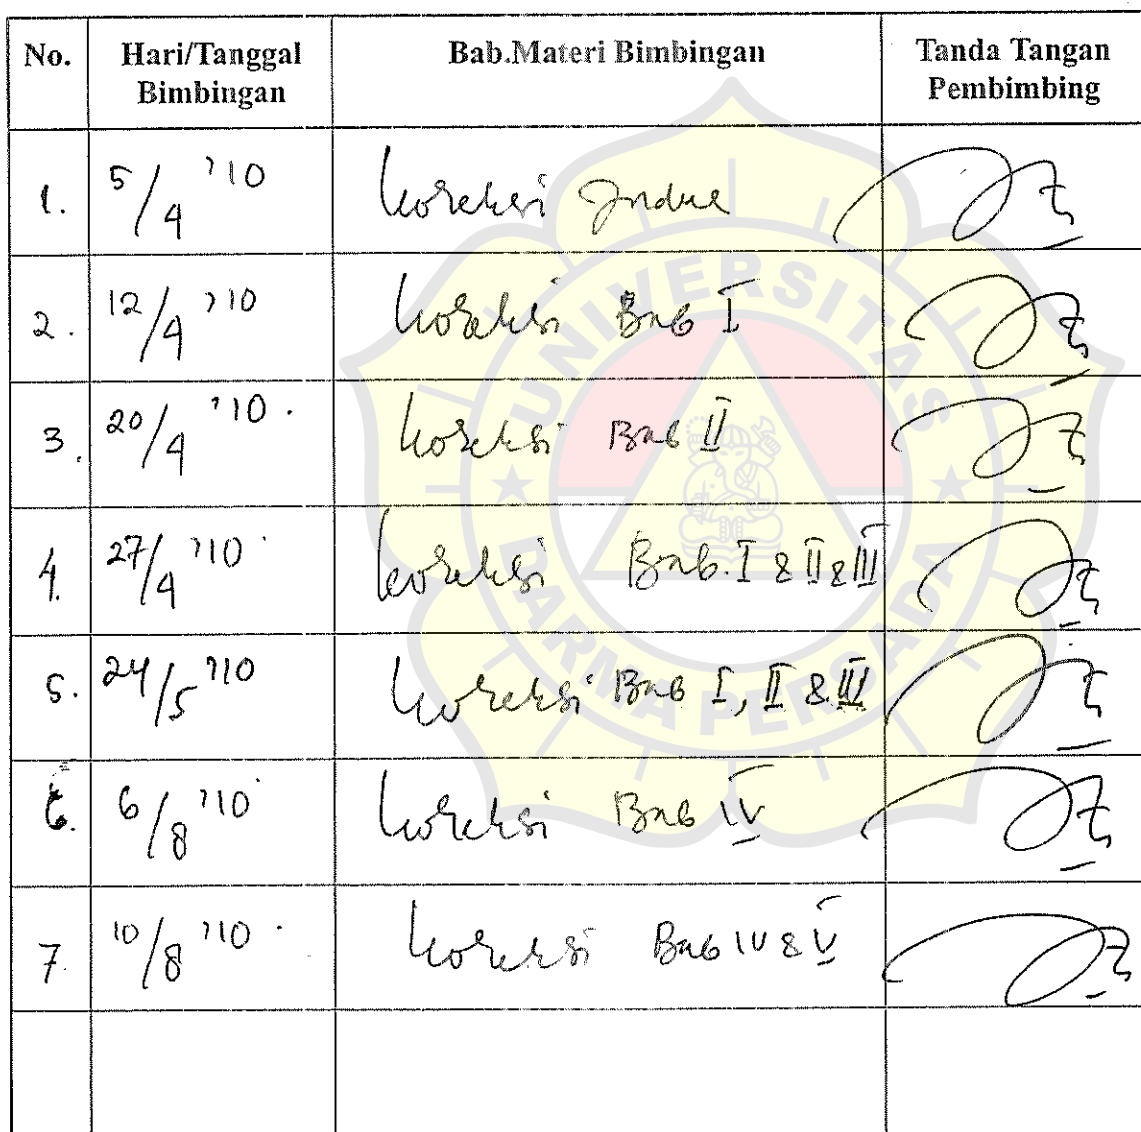 No. Hari/Tanggal Bimbingan Bab.Materi Bimbingan Tanda Tangan Pembimbing
1. 5/4 '10 koreksi
2. 12/4 '10 koreksi Bab I
3. 20/4 '10. koreksi Bab II
4. 27/4 '10 koreksi Bab. I & II & III
5. 24/5 '10 koreksi Bab I, II & III
6. 6/8 '10 koreksi Bab IV
7. 10/8 '10. koreksi Bab IV & V
UNIVERSITAS
DARMA PERSADA